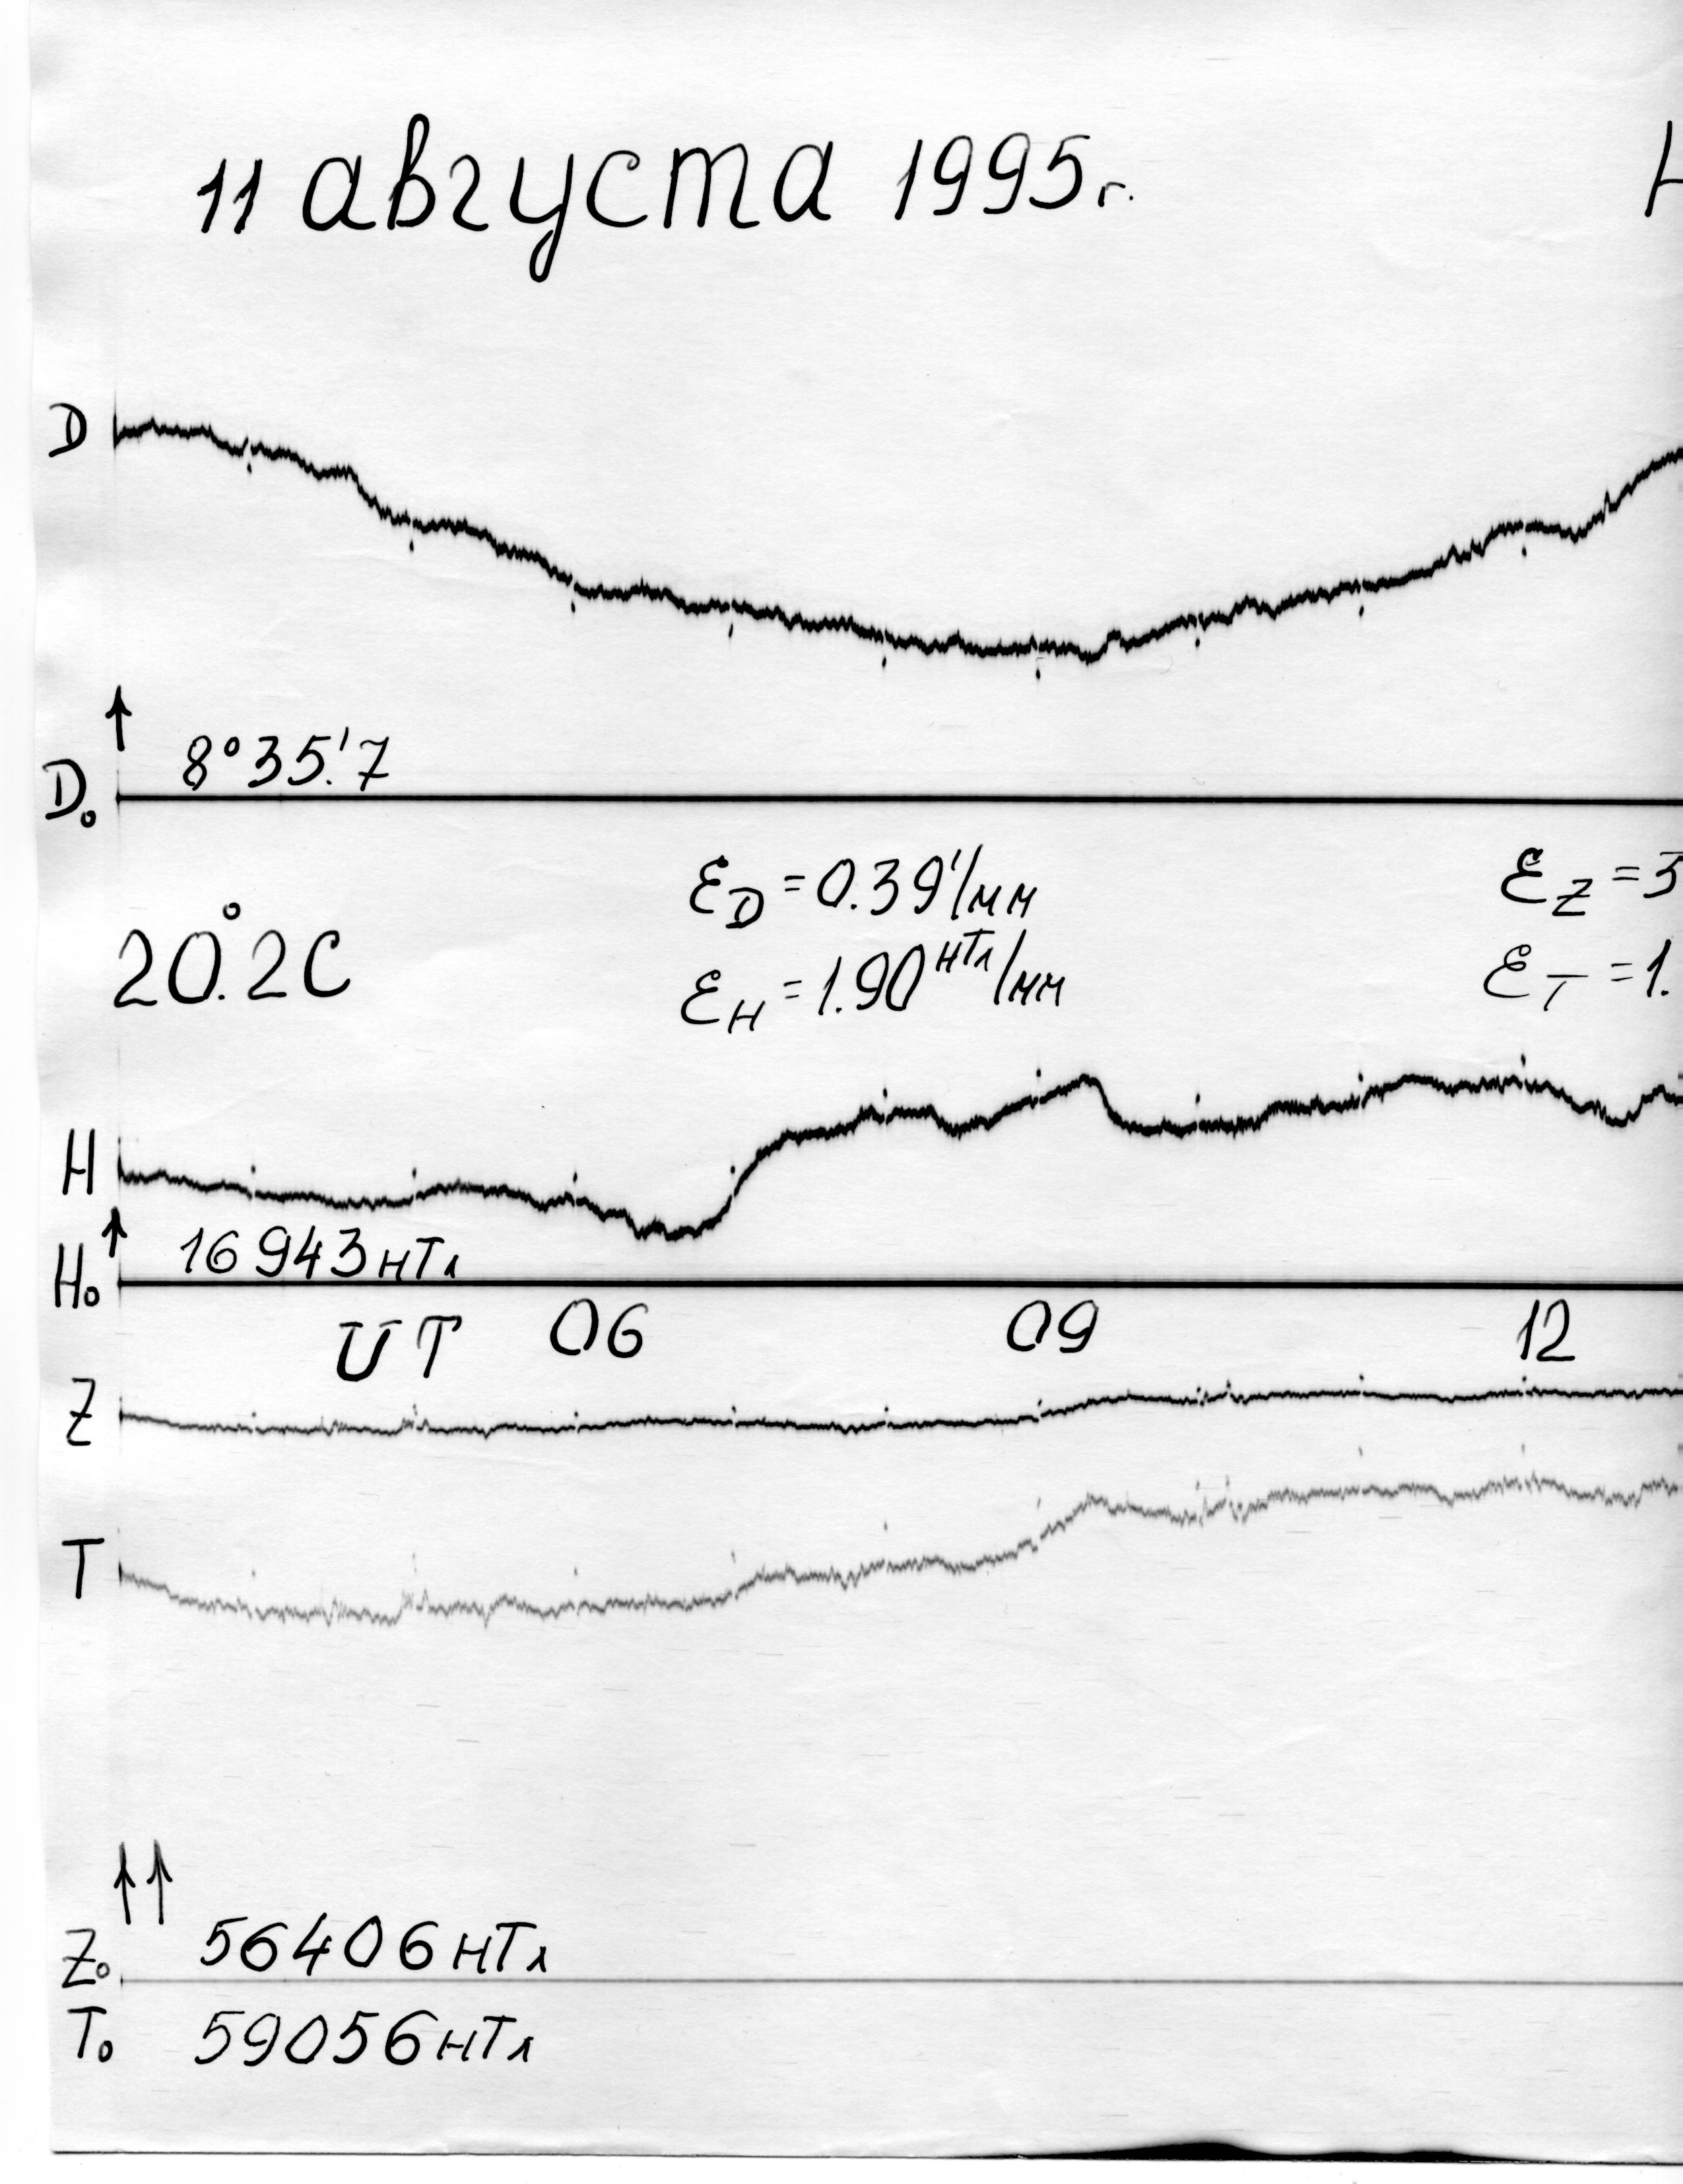 11 августа 1995г.
D
8°35.'7
D₀
ε_D = 0.39'/мм
ε_Z =
20.°2C
ε_H = 1.90 нТл/мм
ε_T = 1.
H
16943 нТл
H₀
UT 06 09 12
Z
T
56406 нТл
Z₀
T₀ 59056 нТл